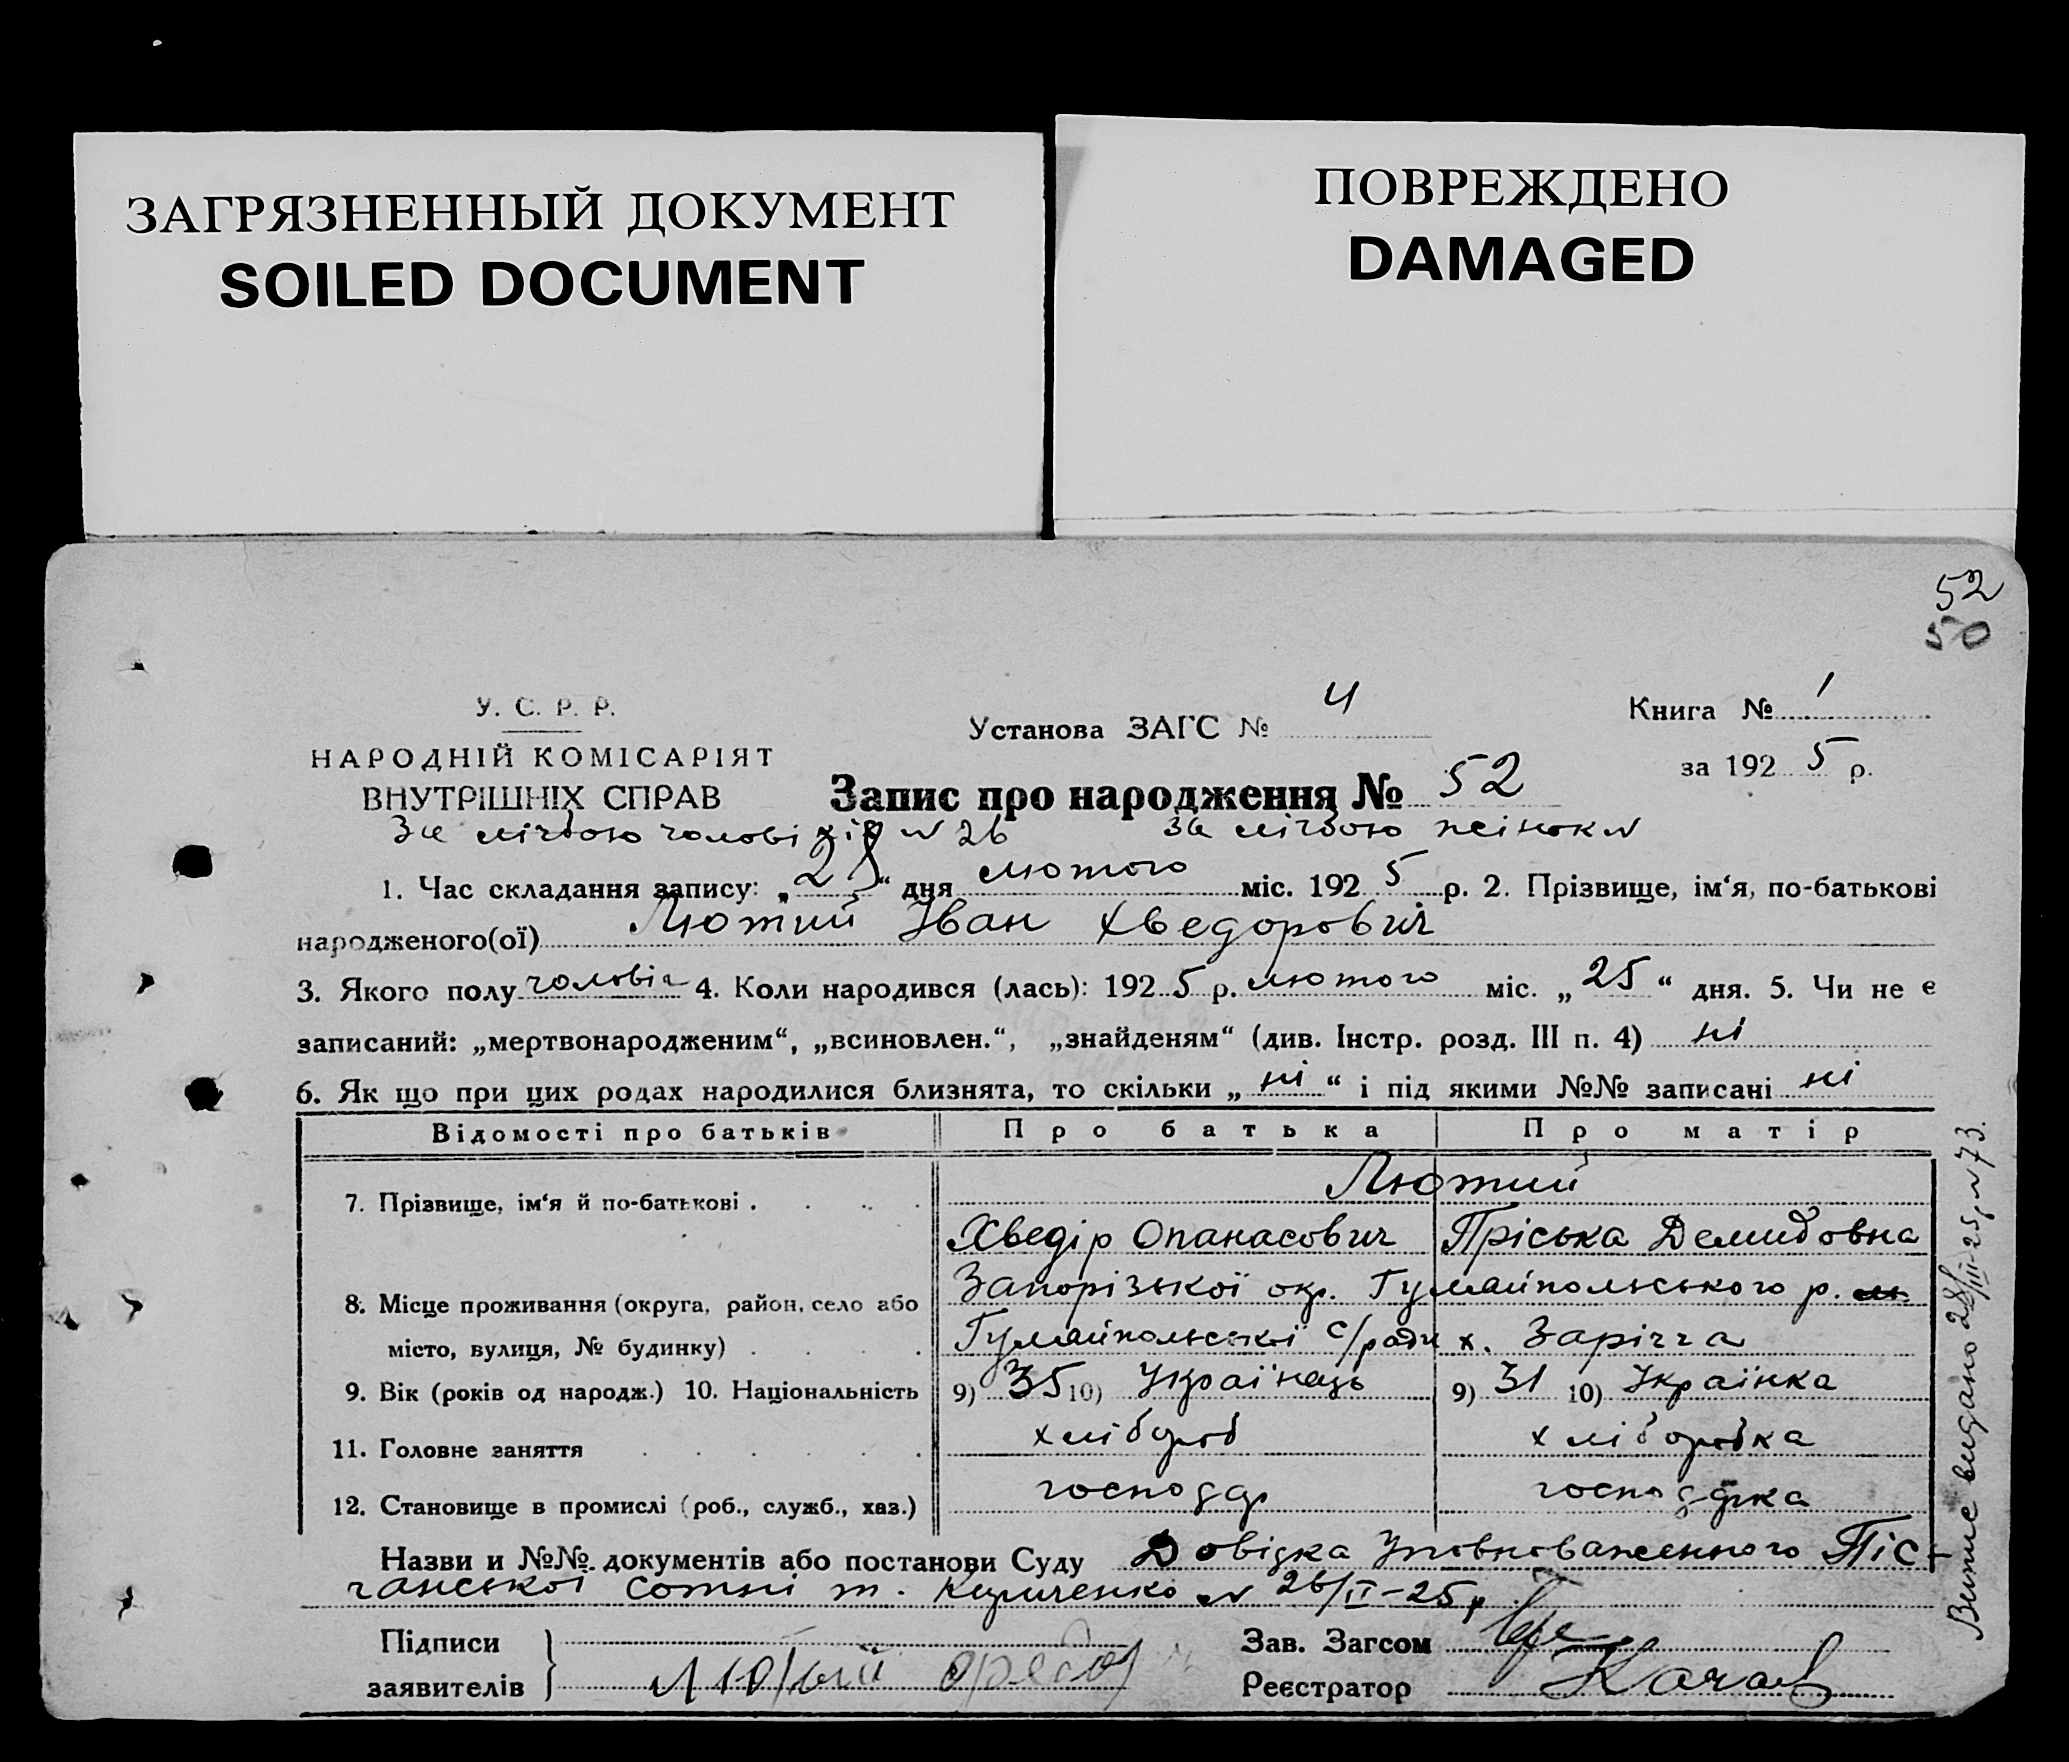 ЗАГРЯЗНЕННЫЙ ДОКУМЕНТ
SOILED DOCUMENT
ПОВРЕЖДЕНО
DAMAGED
52
50
У. С. Р. Р.
НАРОДНІЙ КОМІСАРІЯТ
ВНУТРІШНІХ СПРАВ
Установа ЗАГС № 4
Книга № 1
за 1925 р.
Запис про народження № 52
За лічбою чоловіків N 26 За лічбою жінок N
1. Час складання запису: „28“ дня лютого міс. 1925 р. 2. Прізвище, ім‘я, по-батькові
народженого(ої) Лютий Іван Хведорович
3. Якого полу чоловіч 4. Коли народився (лась): 1925 р. лютого міс. „25“ дня. 5. Чи не є
записаний: „мертвонародженим“, „всиновлен.“, „знайденям“ (див. Інстр. розд. III п. 4) ні
6. Як що при цих родах народилися близнята, то скільки „ні“ і під якими №№ записані ні
Відомості про батьків Про батька Про матір
7. Прізвище, ім‘я й по-батькові . Лютий
Хведір Опанасович Пріська Демидовна
8. Місце проживання (округа, район, село або Запорізької окр. Гуляйпольського р.
місто, вулиця, № будинку) Гуляйпольської с/ради х. Зарічча
9. Вік (років од народж.) 10. Національність 9) 35 10) Українець 9) 31 10) Українка
11. Головне заняття хлібороб хліборобка
12. Становище в промислі (роб., служб., хаз.) господар господарка
Назви и №№ документів або постанови Суду Довідка Уповноваженного Піс-
чанської сотні т. Кириченко N 26/II-25 р.
Підписи
заявителів Лютый
Зав. Загсом
Реєстратор
Витяг видано 28/II-25 р. N 73.